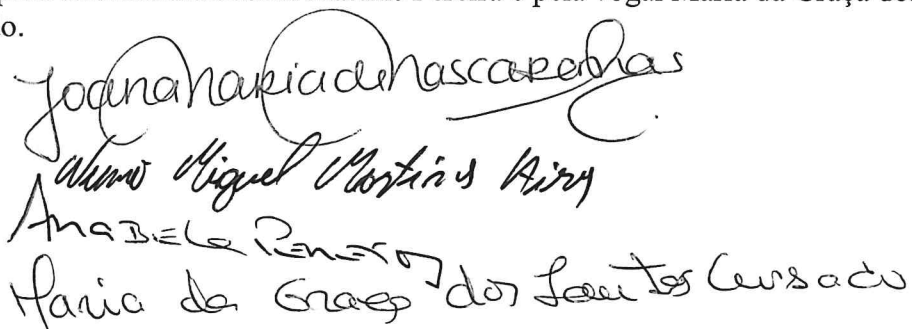 pela vogal Maria da Graça dos
o.
Joana Maria de Mascarenhas
Nuno Miguel Martins Aires
Anabela Pereira
Maria da Graça dos Santos Cursado